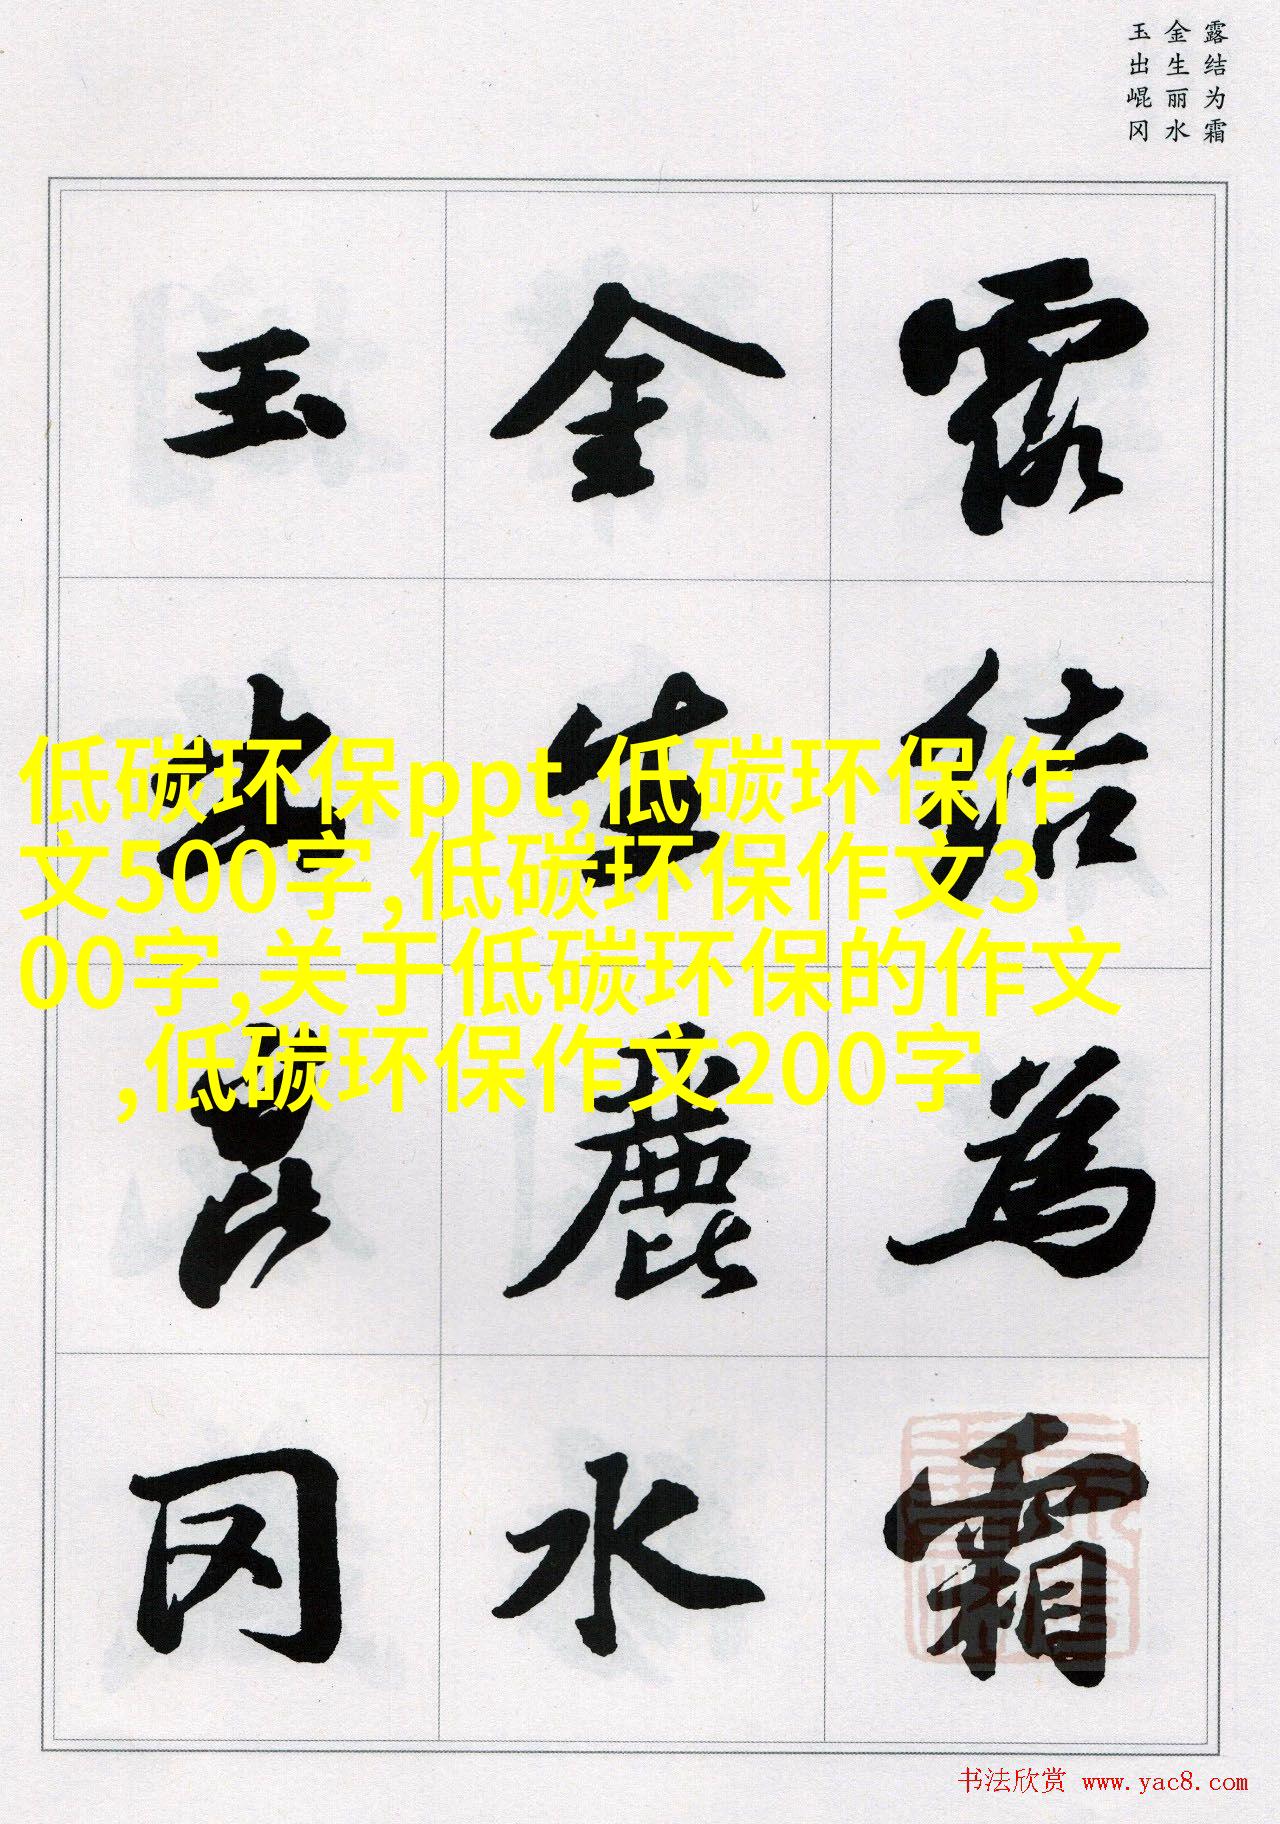 露结为霜
金生丽水
玉出崐冈
露結為霜
金生麗水
玉出崑冈
低碳环保ppt,低碳环保作
文500字,低碳环保作文3
00字,关于低碳环保的作文
,低碳环保作文200字
书法欣赏 www.yac8.com